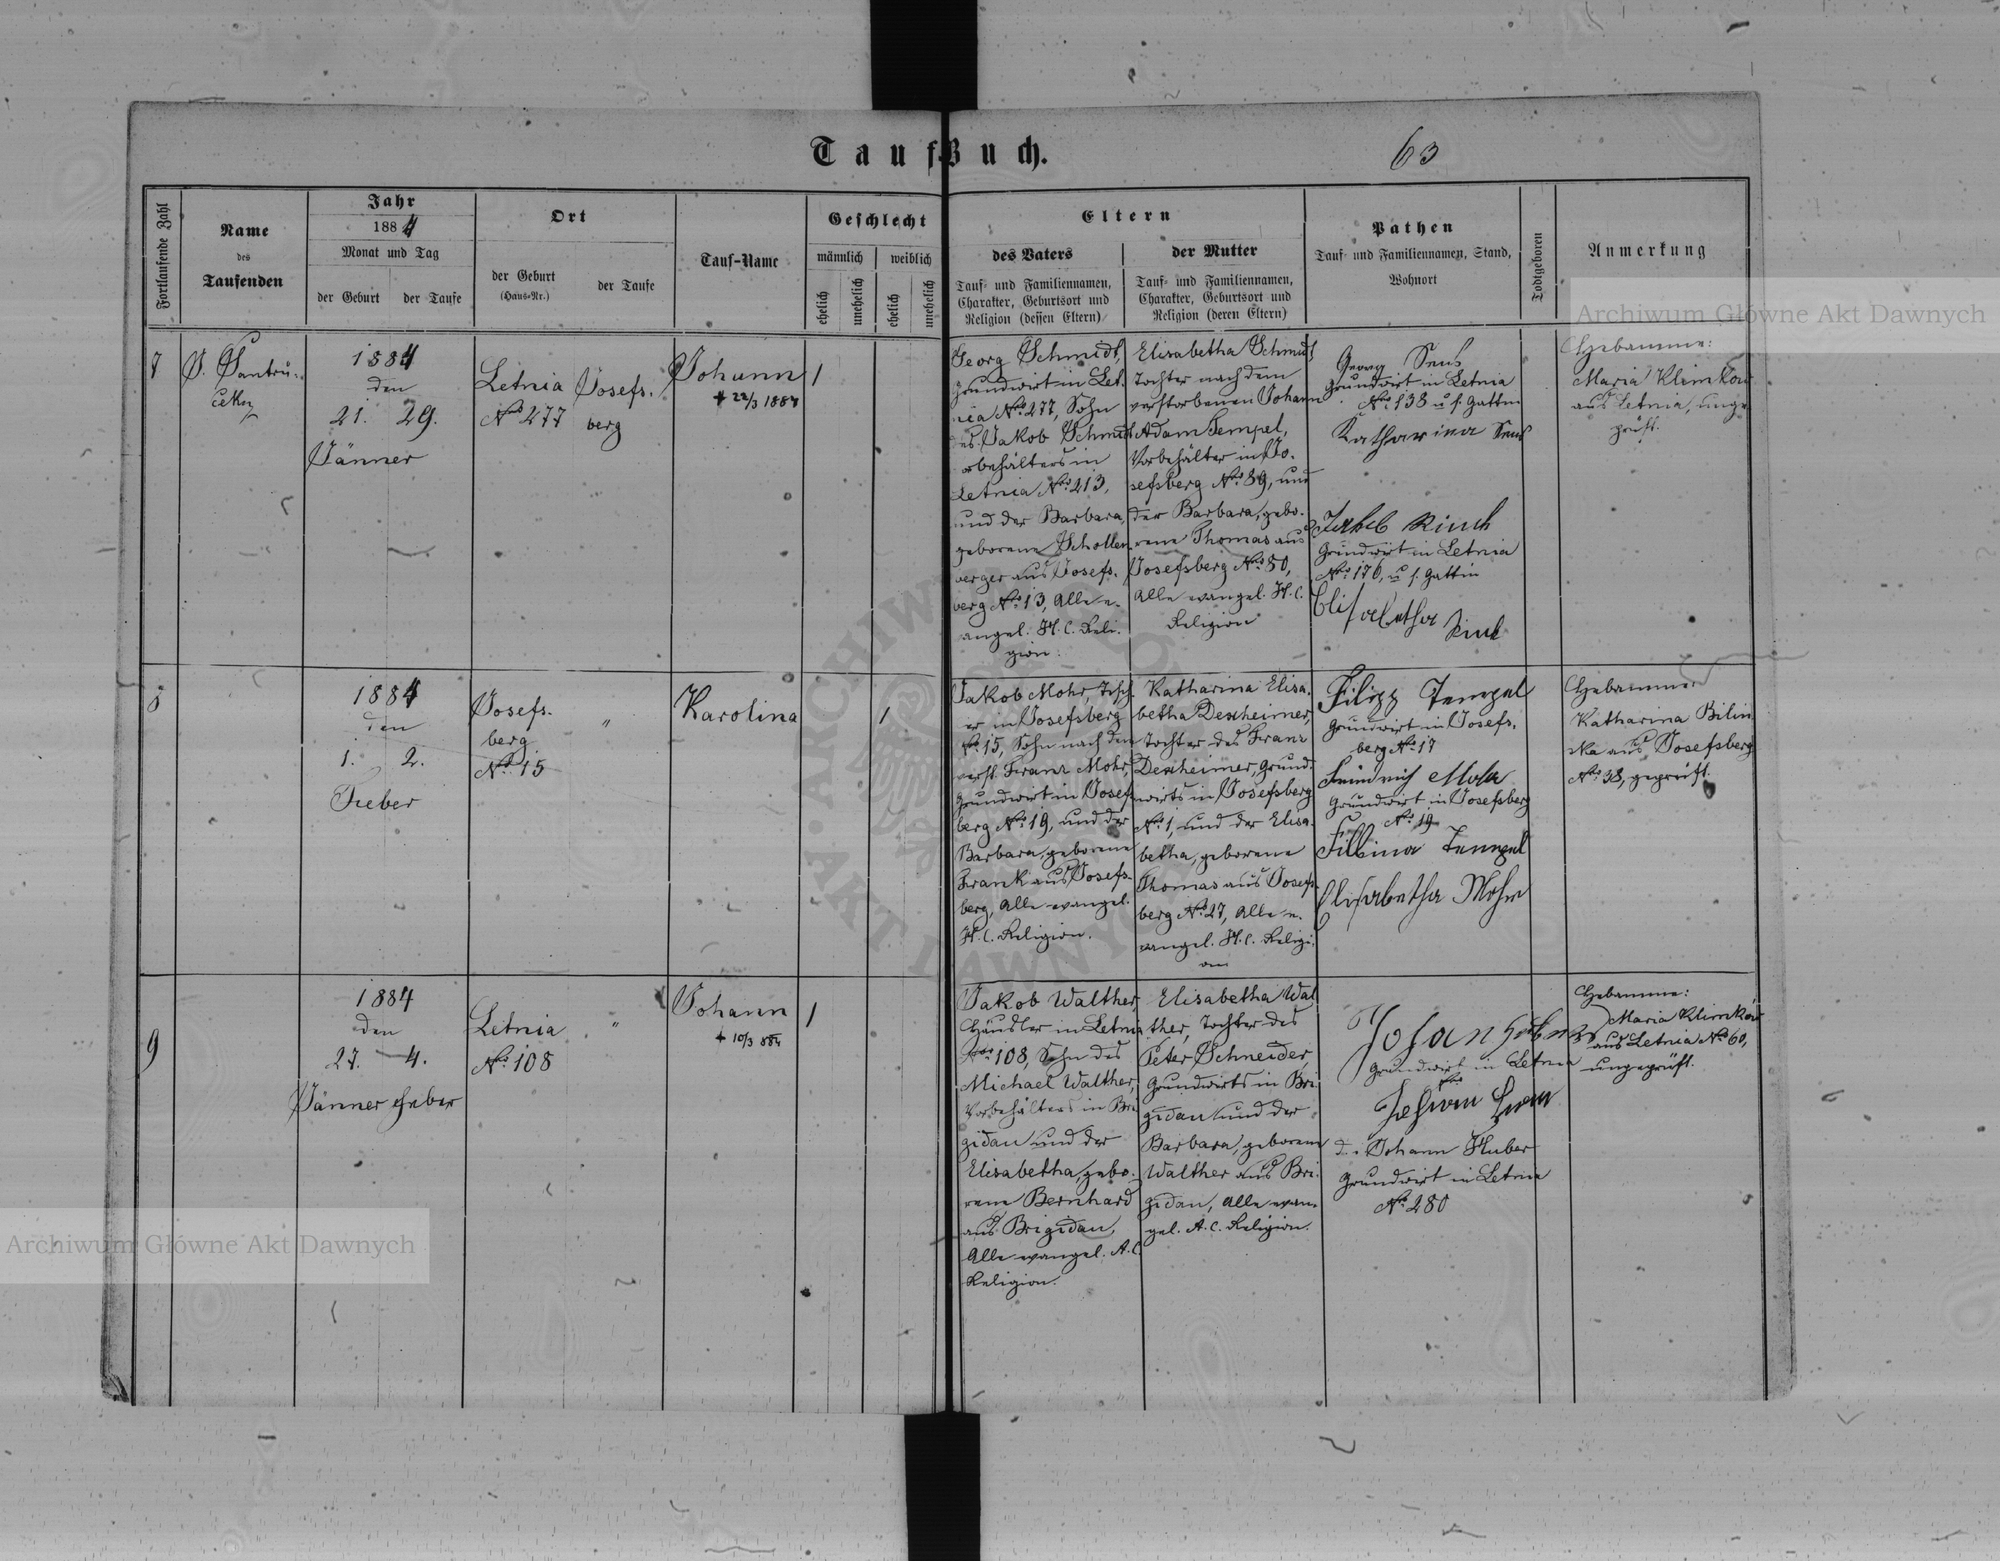 Tauf-Buch.
63
Fortlaufende Zahl
Name
des
Taufenden
Jahr
1884
Monat und Tag
der Geburt
der Taufe
Ort
der Geburt
(Haus-Nr.)
der Taufe
Tauf-Name
Geschlecht
männlich
weiblich
ehelich
unehelich
ehelich
unehelich
Eltern
des Vaters
Tauf- und Familiennamen,
Charakter, Geburtsort und
Religion (dessen Eltern)
der Mutter
Tauf- und Familiennamen,
Charakter, Geburtsort und
Religion (deren Eltern)
Pathen
Tauf- und Familiennamen, Stand,
Wohnort
Todtgeboren
Anmerkung
Archiwum Główne Akt Dawnych
7
1884
den
21. 29.
Jänner
Letnia
No 277
Josefs-
berg
Johann
† 22/3 1884
1
Georg Schmidt,
Grundwirt in Let-
nia No 277, Sohn
des Jakob Schmidt
Vorbehälters in
Letnia No 213,
und der Barbara,
geborene Schollen-
berger aus Josefs-
berg No 13, Alle e-
vangel. H. C. Reli-
gion.
Elisabetha Schmidt
Tochter nach dem
verstorbenen Johann
Adam Tempel,
Vorbehälter in Jo-
sefsberg No 89, und
der Barbara, gebo-
rene Thomas aus
Josefsberg No 80,
Alle evangel. H. C.
Religion
Georg Sens
Grundwirt in Letnia
No 138 u. s. Gattin
Katharina Sens
Jakob Rinck
Grundwirt in Letnia
No 176, u. s. Gattin
Elisabetha
Hebamme:
Maria Klimków
aus Letnia, unge-
prüft.
8
1884
den
1. 2.
Feber
Josefs-
berg
No 15
"
Karolina
1
Jakob Mohr, Tisch-
er in Josefsberg
No 15, Sohn nach dem
verst. Franz Mohr,
Grundwirt in Josefs-
berg No 19, und der
Barbara, geborene
Frank aus Josefs-
berg, Alle evangel.
H. C. Religion.
Katharina Elisa-
betha Dexheimer,
Tochter des Franz
Dexheimer, Grund-
wirts in Josefsberg
No 1, und der Elisa-
betha, geborene
Thomas aus Josefs-
berg No 27, Alle e-
vangel. H. C. Religi-
on
Filipp Tempel
Grundwirt in Josefs-
berg No 17
Friedrich Mohr
Grundwirt in Josefsberg
No 19
Filbina Tempel
Elisabetha Mohr
Hebamme:
Katharina Bilin-
ska aus Josefsberg
No 38, geprüft.
9
1884
den
27. 4.
Jänner Feber
Letnia
No 108
"
Johann
† 10/3 884
1
Jakob Walther,
Häusler in Letnia
No 108, Sohn des
Michael Walther,
Vorbehälters in Bri-
gidau und der
Elisabetha, gebo-
rene Bernhard
aus Brigidau,
Alle evangel. A. C.
Religion.
Elisabetha Wal-
ther, Tochter des
Peter Schneider,
Grundwirts in Bri-
gidau und der
Barbara, geborene
Walther aus Bri-
gidau, Alle evan-
gel. A. C. Religion.
Johan
Grundwirt in Letnia
d. i. Johann Huber
Grundwirt in Letnia
No 280
Hebamme:
Maria Klimków
aus Letnia No 60,
ungeprüft.
Archiwum Główne Akt Dawnych